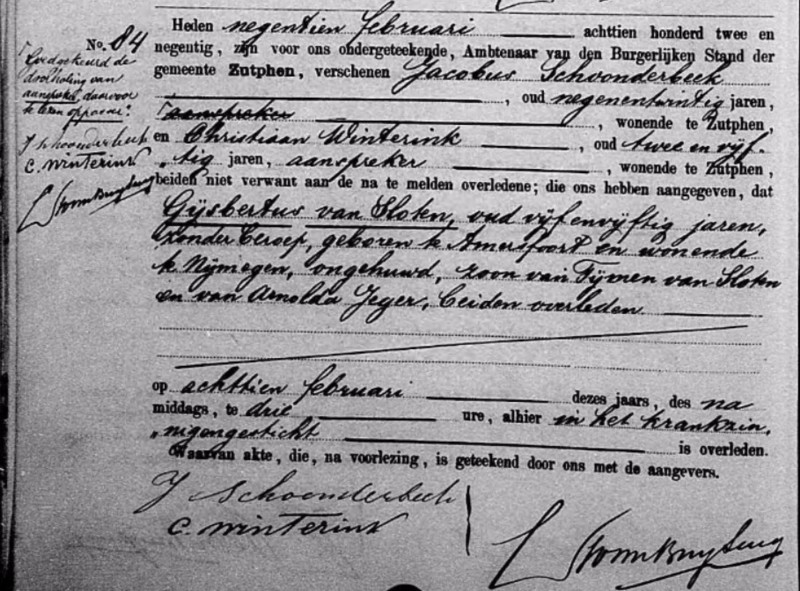 No. 84
Goedgekeurd de
doorhaling van
aanspreker, daarvoor
te lezen oppasser.
J Schoonderbeek
C. Winterink
Heden negentien februari achttien honderd twee en
negentig, zijn voor ons ondergeteekende, Ambtenaar van den Burgerlijken Stand der
gemeente Zutphen, verschenen Jacobus Schoonderbeek
, oud negenentwintig jaren,
aanspreker, wonende te Zutphen,
en Christiaan Winterink, oud twee en vijf-
„tig jaren, aanspreker, wonende te Zutphen,
beiden niet verwant aan de na te melden overledene; die ons hebben aangegeven, dat
Gijsbertus van Sloten, oud vijfenvijftig jaren,
zonder beroep, geboren te Amersfoort en wonende
te Nijmegen, ongehuwd, zoon van Tijmen van Sloten
en van Arnolda Jeger, beiden overleden
op achttien februari dezes jaars, des na
middags, te drie ure, alhier in het krankzin-
„nigengesticht is overleden.
Waarvan akte, die, na voorlezing, is geteekend door ons met de aangevers.
J Schoonderbeek
C. Winterink